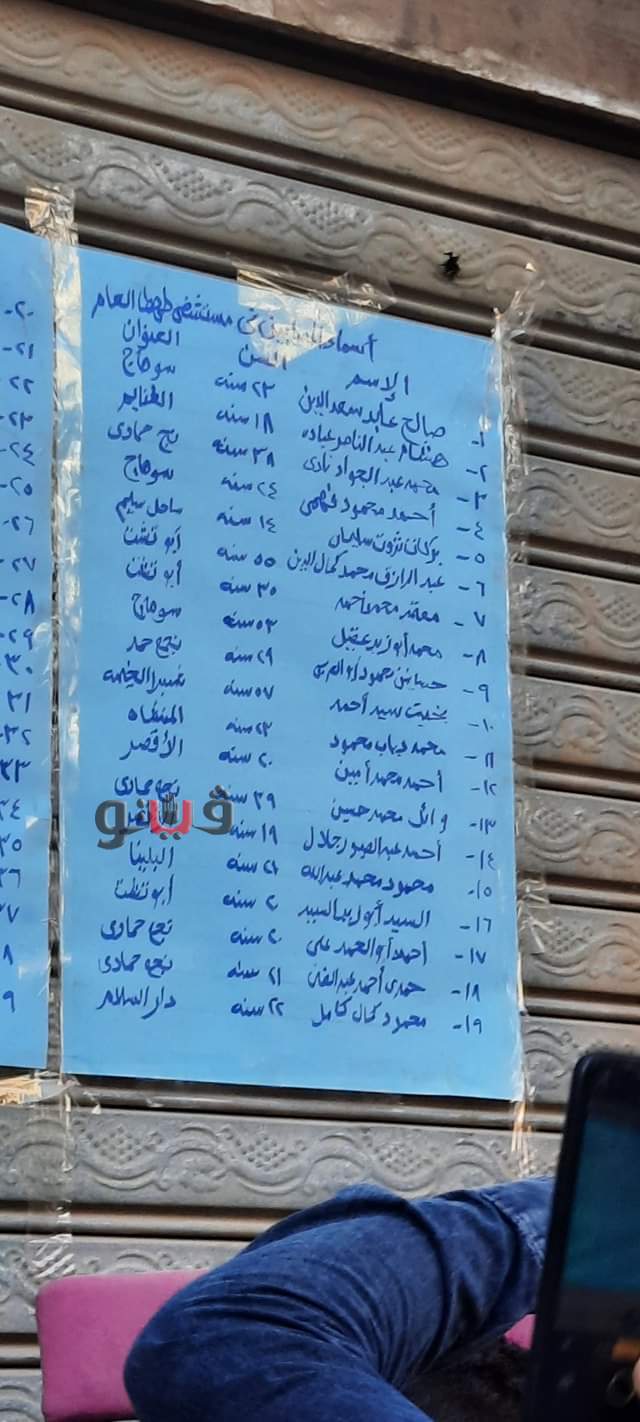 أسماء المصابين في مستشفى طهطا العام
الإسم السن العنوان
١- صالح عابد سعد الدين ٢٣ سنه سوهاج
٢- هشام عبد الناصر عباده ١٨ سنه الغنايم
٣- محمد عبد الجواد نادى ٣٨ سنه نجع حمادى
٤- أحمد محمود فهمى ٢٤ سنه سوهاج
٥- بركات ثروت سليمان ١٤ سنه ساحل سليم
٦- عبد الرازق محمد كمال الدين ٥٥ سنه أبو تشت
٧- معتمد محمد أحمد ٣٠ سنه أبو تشت
٨- محمد أبو زيد عقيل ٥٣ سنه سوهاج
٩- حسانين محمود ٢٩ سنه نجع حمد
١٠- بخيت سيد أحمد ٥٧ سنه شبرا الخيمه
١١- محمد دياب محمود ٢٣ سنه المنشاه
١٢- أحمد محمد أمين ٢٠ سنه الأقصر
١٣- وائل محمد حسين ٣٩ سنه نجع حمادى
١٤- أحمد عبد الصبور جلال ١٩ سنه
١٥- محمود محمد عبد الله ٢١ سنه البلينا
١٦- السيد أبو زيد السيد ٢٠ سنه أبو تشت
١٧- أحمد أبو الحمد على ٢٠ سنه نجع حمادى
١٨- حمدى أحمد عبد الغنى ٢١ سنه نجع حمادى
١٩- محمود كمال كامل ٢٢ سنه دار السلام
٢٠-
٢١-
٢٢-
٢٣-
٢٤-
٢٥-
٢٦-
٢٧-
٢٨-
٢٩-
٣٠-
٣١
٣٢-
٣٣
٣٤
٣٥
٣٦
٣٧
٨
٩
فيتو